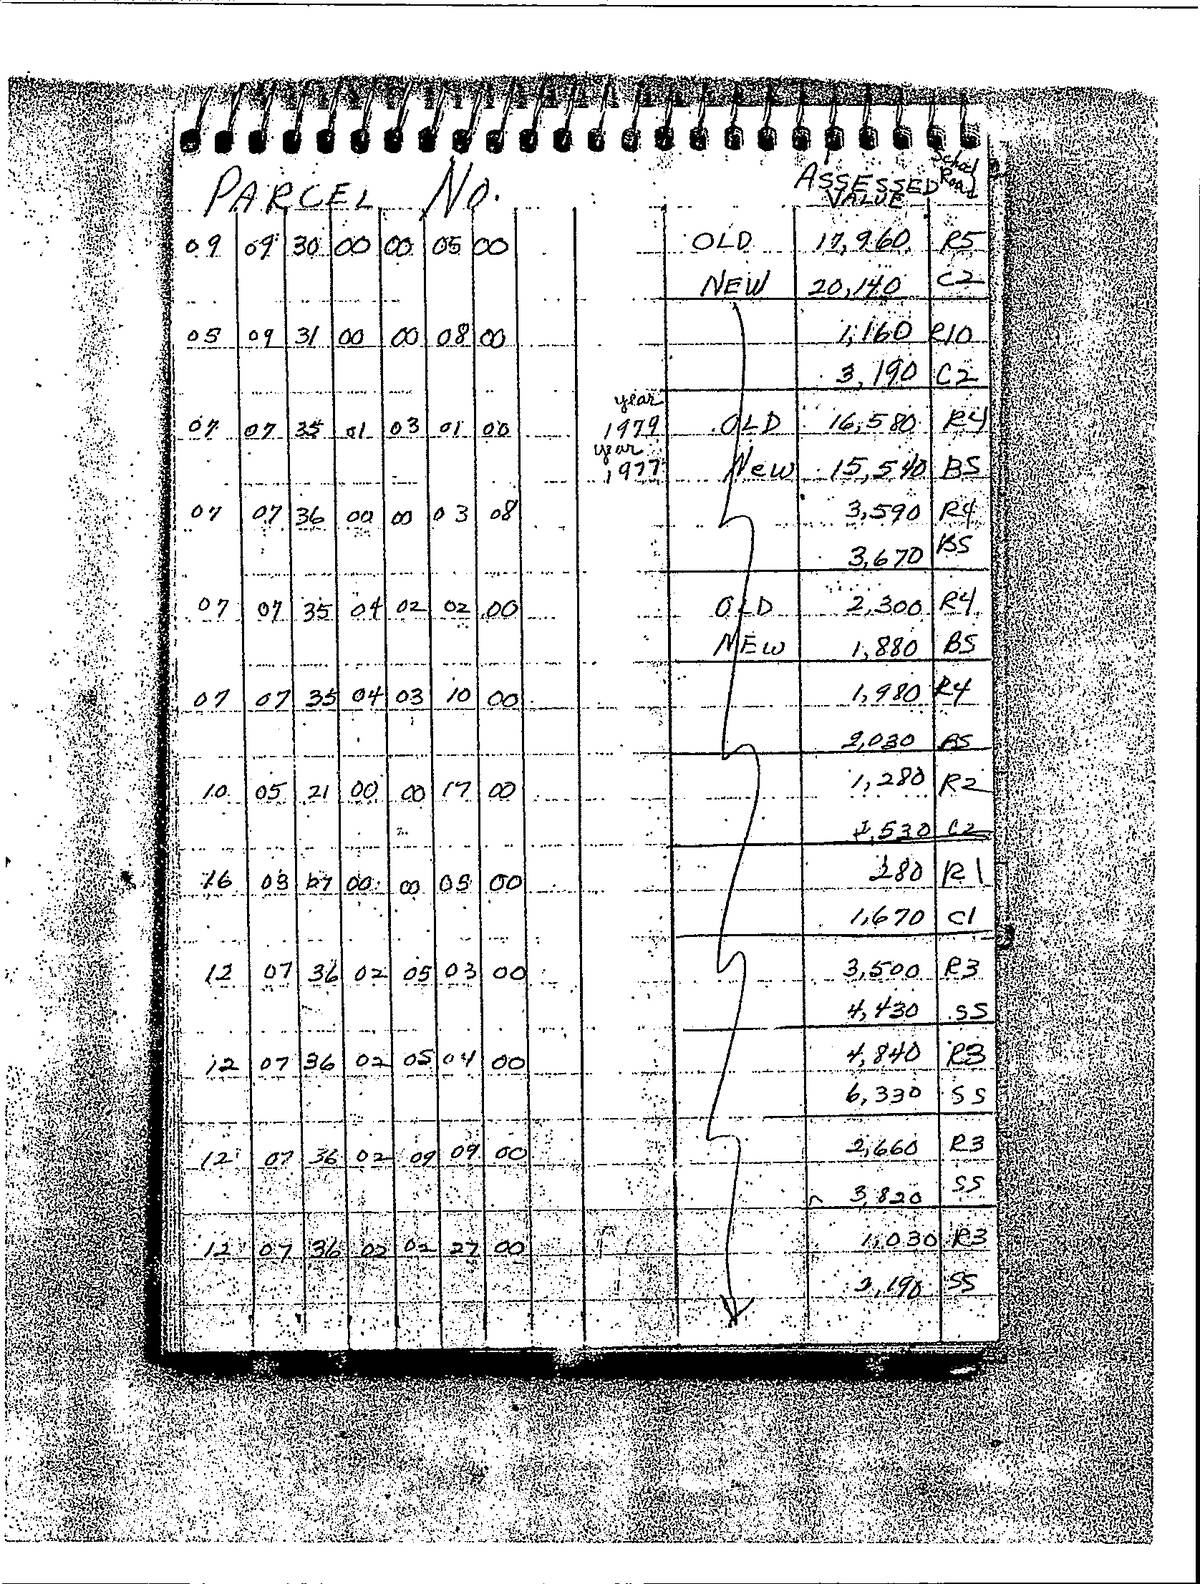 PARCEL NO. ASSESSED VALUE School Road
09 09 30 00 00 05 00 OLD 17,960 R5
NEW 20,140 C2
05 09 31 00 00 08 00 1,160 R10
3,190 C2
year
07 07 35 01 03 01 00 1979 OLD 16,580 R4
year
1977 New 15,540 BS
07 07 36 00 00 03 08 3,590 R4
3,670 BS
07 07 35 04 02 02 00 OLD 2,300 R4
NEW 1,880 BS
07 07 35 04 03 10 00 1,980 R4
2,030 BS
10 05 21 00 00 17 00 1,280 R2
1,530 C2
16 03 00 00 05 00 280 R1
1,670 C1
12 07 36 02 05 03 00 3,500 R3
4,430 SS
12 07 36 02 05 04 00 4,840 R3
6,330 SS
12 07 36 02 09 09 00 2,660 R3
3,820 SS
12 07 36 02 02 27 00 1,030 R3
SS